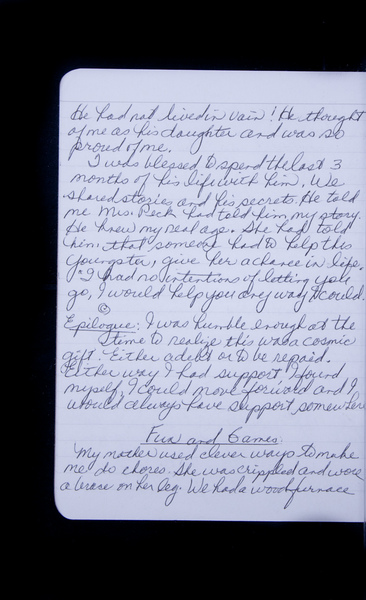 He had not lived in vain! He thought
of me as his daughter and was so
proud of me.
I was blessed to spend the last 3
months of his life with him. We
shared stories and his secrets. He told
me Mrs. Peck had told him my story.
He knew my real age. She had told
him, that someone had to help this
youngster, give her a chance in life.
"I had no intentions of letting you
go, I would help you any way I could.
☺
Epilogue: I was humble enough at the
time to realize this was a cosmic
gift. Either a debt or to be repaid.
Either way I had support. I found
myself, I could move forward and I
would always have support somewhere
Fun and Games:
My mother used clever ways to make
me do chores. She was crippled and wore
a brace on her leg. We had a wood furnace